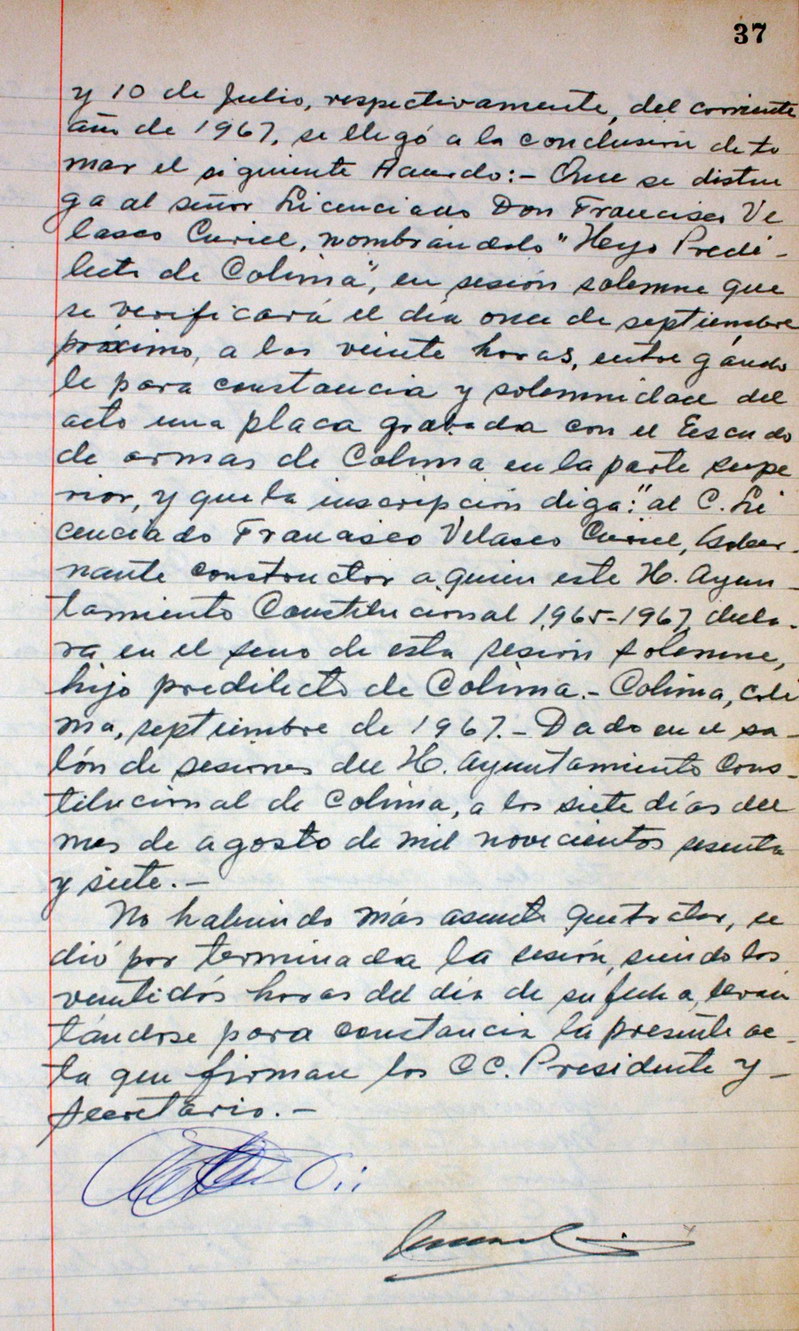 37
y 10 de Julio, respectivamente, del corriente
año de 1967, se llegó a la conclusión de to
mar el siguiente Acuerdo:- Que se distin
ga al señor Licenciado Don Francisco Ve
lasco Curiel, nombrándolo "Hijo Predi-
lecto de Colima", en sesión solemne que
se verificará el día once de septiembre
próximo, a las veinte horas, entregándo
le para constancia y solemnidad del
acto una placa grabada con el Escudo
de armas de Colima en la parte supe
rior, y que la inscripción diga: "al C. Li
cenciado Francisco Velasco Curiel, Gober-
nante constructor a quien este H. Ayun-
tamiento Constitucional 1965-1967, decla-
ra en el seno de esta sesión solemne,
hijo predilecto de Colima.- Colima, Coli
ma, septiembre de 1967.- Dado en el sa-
lón de sesiones del H. Ayuntamiento Cons-
titucional de Colima, a los siete días del
mes de agosto de mil novecientos sesenta
y siete.-
No habiendo más asunto que tratar, se
dió por terminada la sesión, siendo las
veintidós horas del día de su fecha, levan
tándose para constancia la presente ac-
ta que firman los CC. Presidente y -
Secretario.-